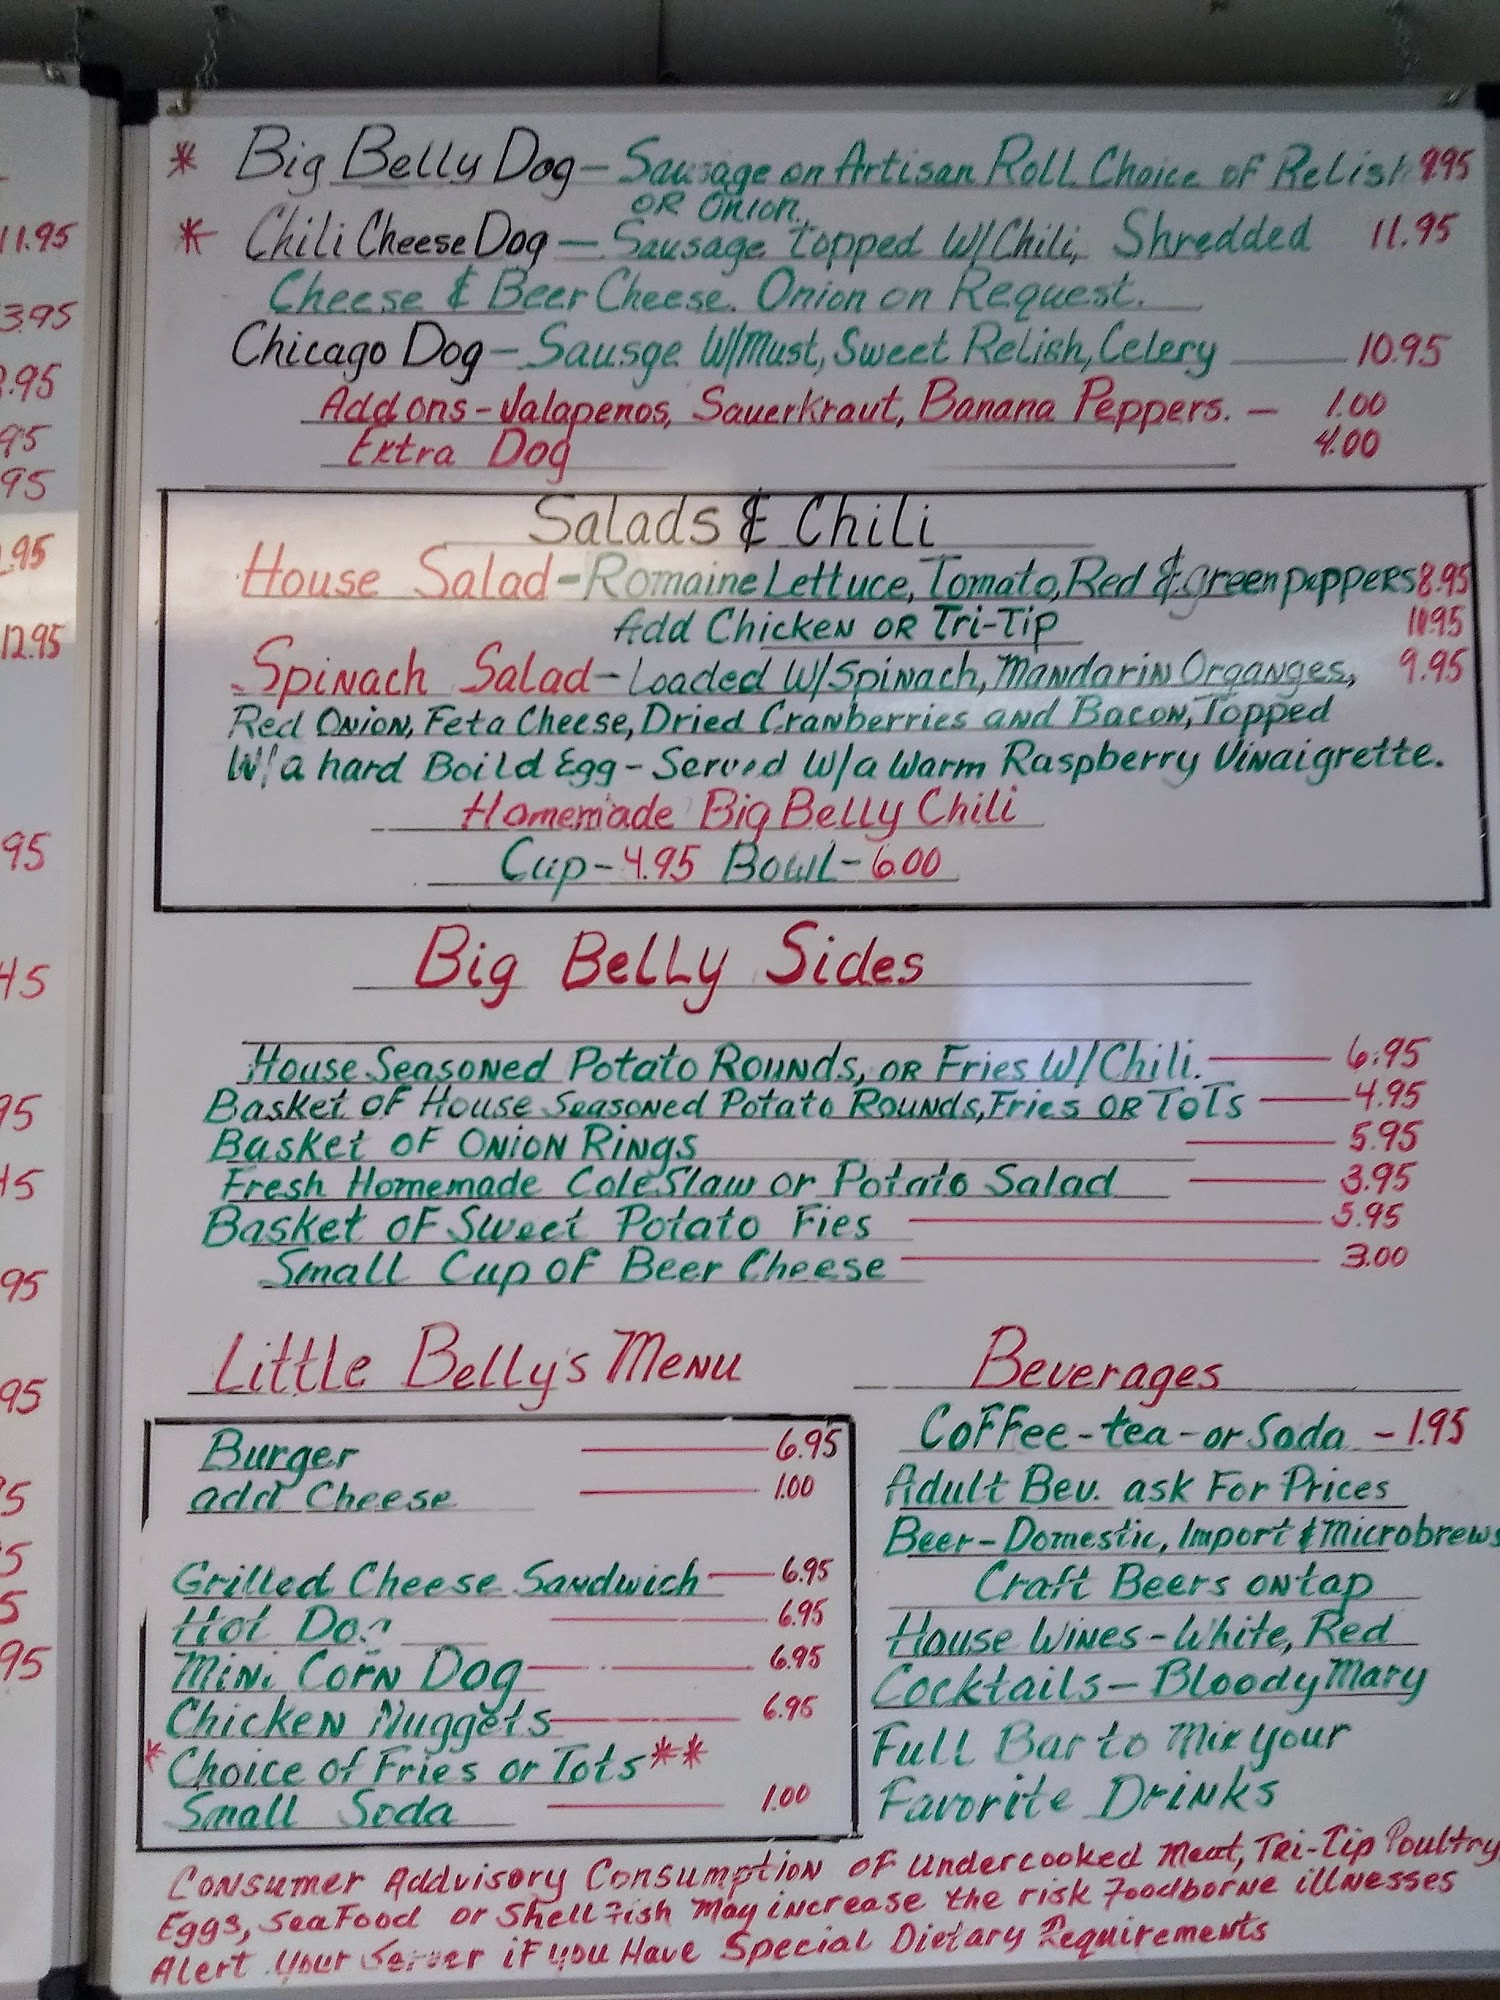 11.95
3.95
.95
95
95
.95
12.95
95
45
95
45
95
95
5
5
5
95
* Big Belly Dog - Sausage on Artisan Roll Choice of Relish 9.95
OR Onion.
* Chili Cheese Dog - Sausage Topped W/Chili, Shredded 11.95
Cheese & Beer Cheese. Onion on Request.
Chicago Dog - Sausge W/Must, Sweet Relish, Celery 10.95
Add ons - Jalapenos, Sauerkraut, Banana Peppers. - 1.00
Extra Dog 4.00
Salads & Chili
House Salad - Romaine Lettuce, Tomato, Red & green peppers 8.95
Add Chicken OR Tri-Tip 11.95
Spinach Salad - Loaded W/Spinach, Mandarin Organges, 9.95
Red Onion, Feta Cheese, Dried Cranberries and Bacon, Topped
W/a hard Boild Egg - Served W/a Warm Raspberry Vinaigrette.
Homemade Big Belly Chili
Cup - 4.95 Bowl - 6.00
Big Belly Sides
House Seasoned Potato Rounds, OR Fries W/Chili. 6.95
Basket of House Seasoned Potato Rounds, Fries OR Tots 4.95
Basket of Onion Rings 5.95
Fresh Homemade Cole Slaw or Potato Salad 3.95
Basket of Sweet Potato Fies 5.95
Small Cup of Beer Cheese 3.00
Little Belly's Menu
Burger 6.95
add Cheese 1.00
Grilled Cheese Sandwich 6.95
Hot Dog 6.95
Mini Corn Dog 6.95
Chicken Nuggets 6.95
* Choice of Fries or Tots **
Small Soda 1.00
Beverages
Coffee - tea - or Soda - 1.95
Adult Bev. ask For Prices
Beer - Domestic, Import & Microbrews
Craft Beers on tap
House Wines - White, Red
Cocktails - Bloody Mary
Full Bar to Mix your
Favorite Drinks
Consumer Addvisory Consumption of undercooked Meat, Tri-Tip Poultry
Eggs, Seafood or Shell Fish May increase the risk Foodborne illnesses
Alert your Server if you Have Special Dietary Requirements